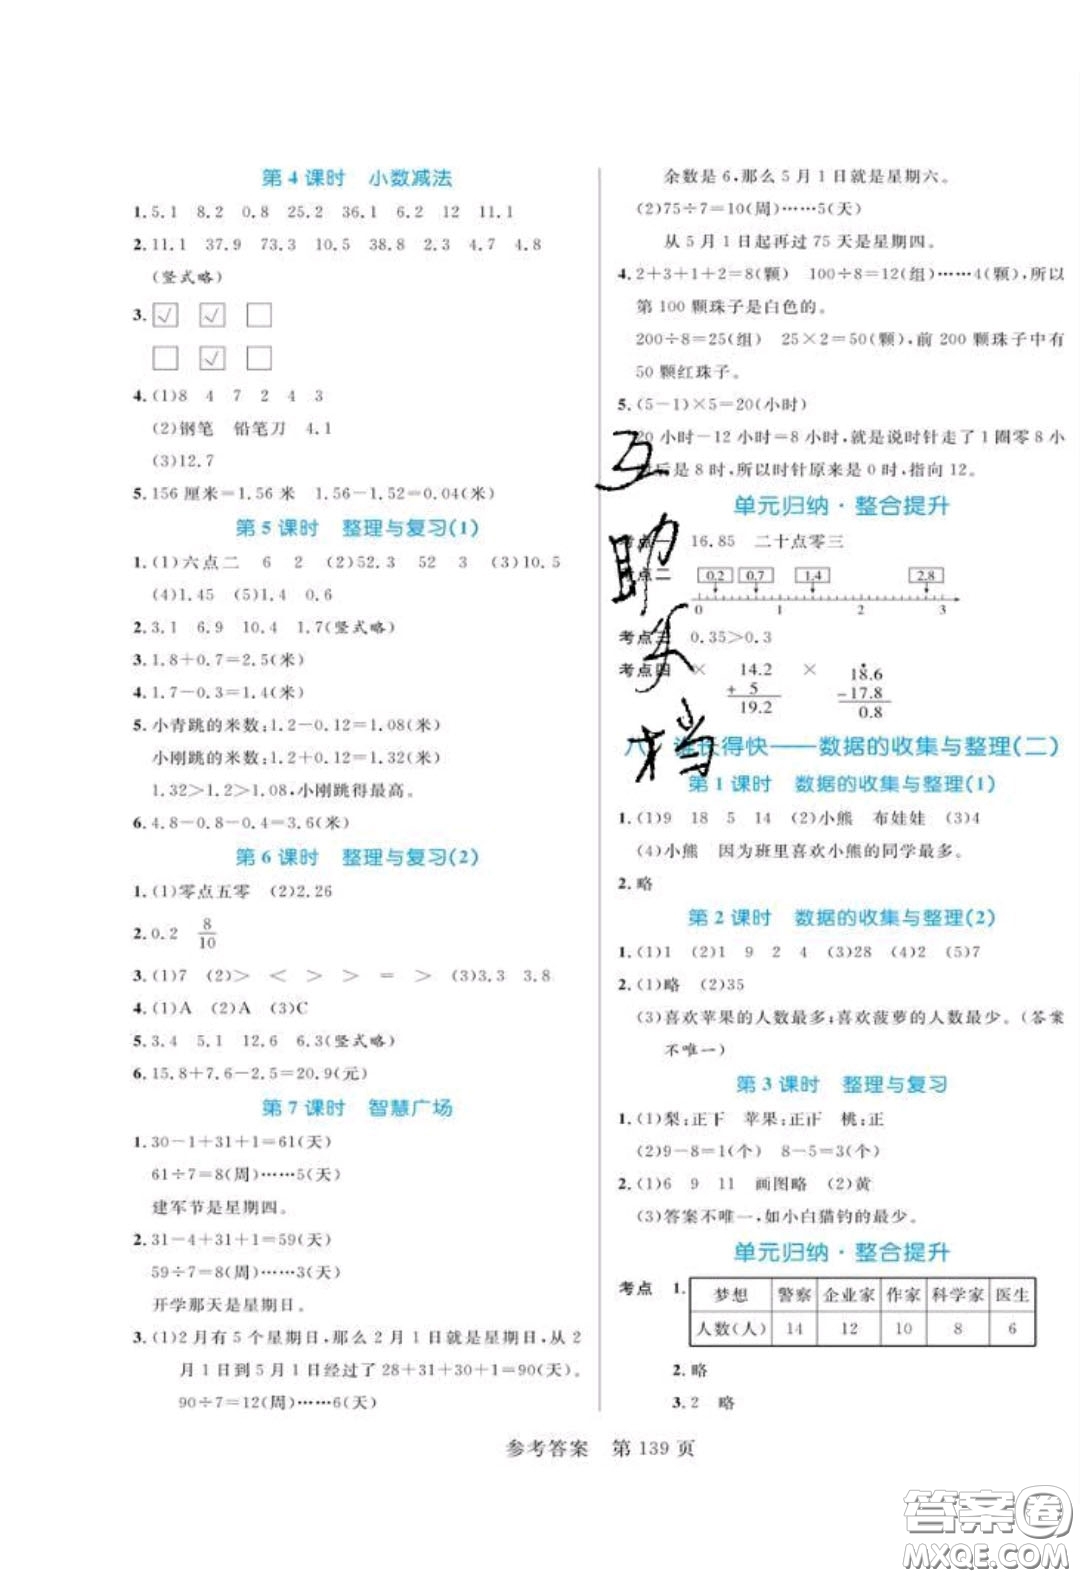 第 4 课时　小数减法
1.5.1　8.2　0.8　25.2　36.1　6.2　12　11.1
2.11.1　37.9　73.3　10.5　38.8　2.3　4.7　4.8
(竖式略)
3.☑　☑　☐
☐　☑　☐
4.(1)8　4　7　2　4　3
(2)钢笔　铅笔刀　4.1
(3)12.7
5.156 厘米=1.56 米　1.56-1.52=0.04(米)
第 5 课时　整理与复习(1)
1.(1)六点二　6　2　(2)52.3　52　3　(3)10.5
(4)1.45　(5)1.4　0.6
2.3.1　6.9　10.4　1.7(竖式略)
3.1.8+0.7=2.5(米)
4.1.7-0.3=1.4(米)
5.小青跳的米数:1.2-0.12=1.08(米)
小刚跳的米数:1.2+0.12=1.32(米)
1.32>1.2>1.08,小刚跳得最高。
6.4.8-0.8-0.4=3.6(米)
第 6 课时　整理与复习(2)
1.(1)零点五零　(2)2.26
2.0.2　8/10
3.(1)7　(2)>　<　>　>　=　>　(3)3.3　3.8
4.(1)A　(2)A　(3)C
5.3.4　5.1　12.6　6.3(竖式略)
6.15.8+7.6-2.5=20.9(元)
第 7 课时　智慧广场
1.30-1+31+1=61(天)
61÷7=8(周)……5(天)
建军节是星期四。
2.31-4+31+1=59(天)
59÷7=8(周)……3(天)
开学那天是星期日。
3.(1)2 月有 5 个星期日,那么 2 月 1 日就是星期日,从 2
月 1 日到 5 月 1 日经过了 28+31+30+1=90(天)。
90÷7=12(周)……6(天)
余数是 6,那么 5 月 1 日就是星期六。
(2)75÷7=10(周)……5(天)
从 5 月 1 日起再过 75 天是星期四。
4.2+3+1+2=8(颗)　100÷8=12(组)……4(颗),所以
第 100 颗珠子是白色的。
200÷8=25(组)　25×2=50(颗),前 200 颗珠子中有
50 颗红珠子。
5.(5-1)×5=20(小时)
20 小时-12 小时=8 小时,就是说时针走了 1 圈零 8 小
后是 8 时,所以时针原来是 0 时,指向 12。
单元归纳·整合提升
考点一　16.85　二十点零三
考点二　0.2　0.7　1.4　2.8
0　1　2　3
考点三　0.35>0.3
考点四　×　14.2　×　18.6
+ 5　-17.8
19.2　0.8
八　谁长得快——数据的收集与整理(二)
第 1 课时　数据的收集与整理(1)
1.(1)9　18　5　14　(2)小熊　布娃娃　(3)4
(4)小熊　因为班里喜欢小熊的同学最多。
2.略
第 2 课时　数据的收集与整理(2)
1.(1)1　(2)1　9　2　4　(3)28　(4)2　(5)7
2.(1)略　(2)35
(3)喜欢苹果的人数最多;喜欢菠萝的人数最少。(答案
不唯一)
第 3 课时　整理与复习
1.(1)梨:正下　苹果:正正　桃:正
(2)9-8=1(个)　8-5=3(个)
2.(1)6　9　11　画图略　(2)黄
(3)答案不唯一,如小白猫钓的最少。
单元归纳·整合提升
考点　1.
梦想　警察　企业家　作家　科学家　医生
人数(人)　14　12　10　8　6
2.略
3.2　略
参考答案　第 139 页
互
助
头
档
答案圈
MXQE.COM